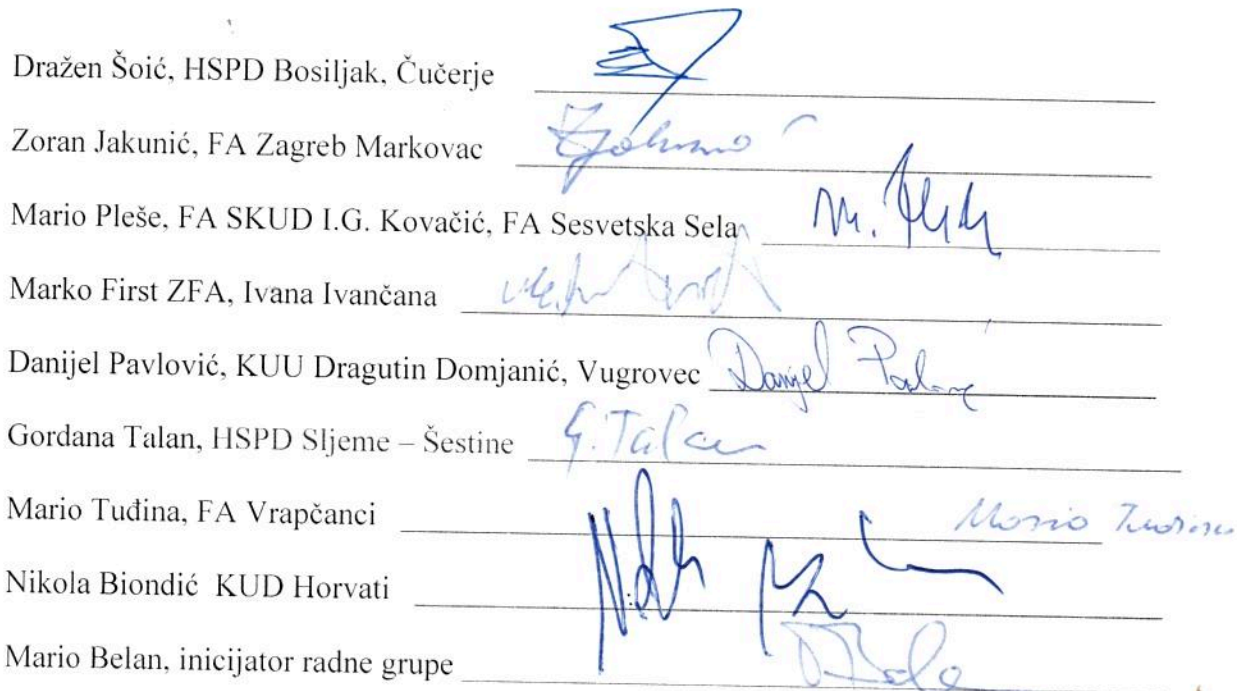 Dražen Šoić, HSPD Bosiljak, Čučerje
Zoran Jakunić, FA Zagreb Markovac
Mario Pleše, FA SKUD I.G. Kovačić, FA Sesvetska Sela M.
Marko First ZFA, Ivana Ivančana
Danijel Pavlović, KUU Dragutin Domjanić, Vugrovec Danijel
Gordana Talan, HSPD Sljeme – Šestine G. Talan
Mario Tuđina, FA Vrapčanci Mario Tuđina
Nikola Biondić KUD Horvati
Mario Belan, inicijator radne grupe